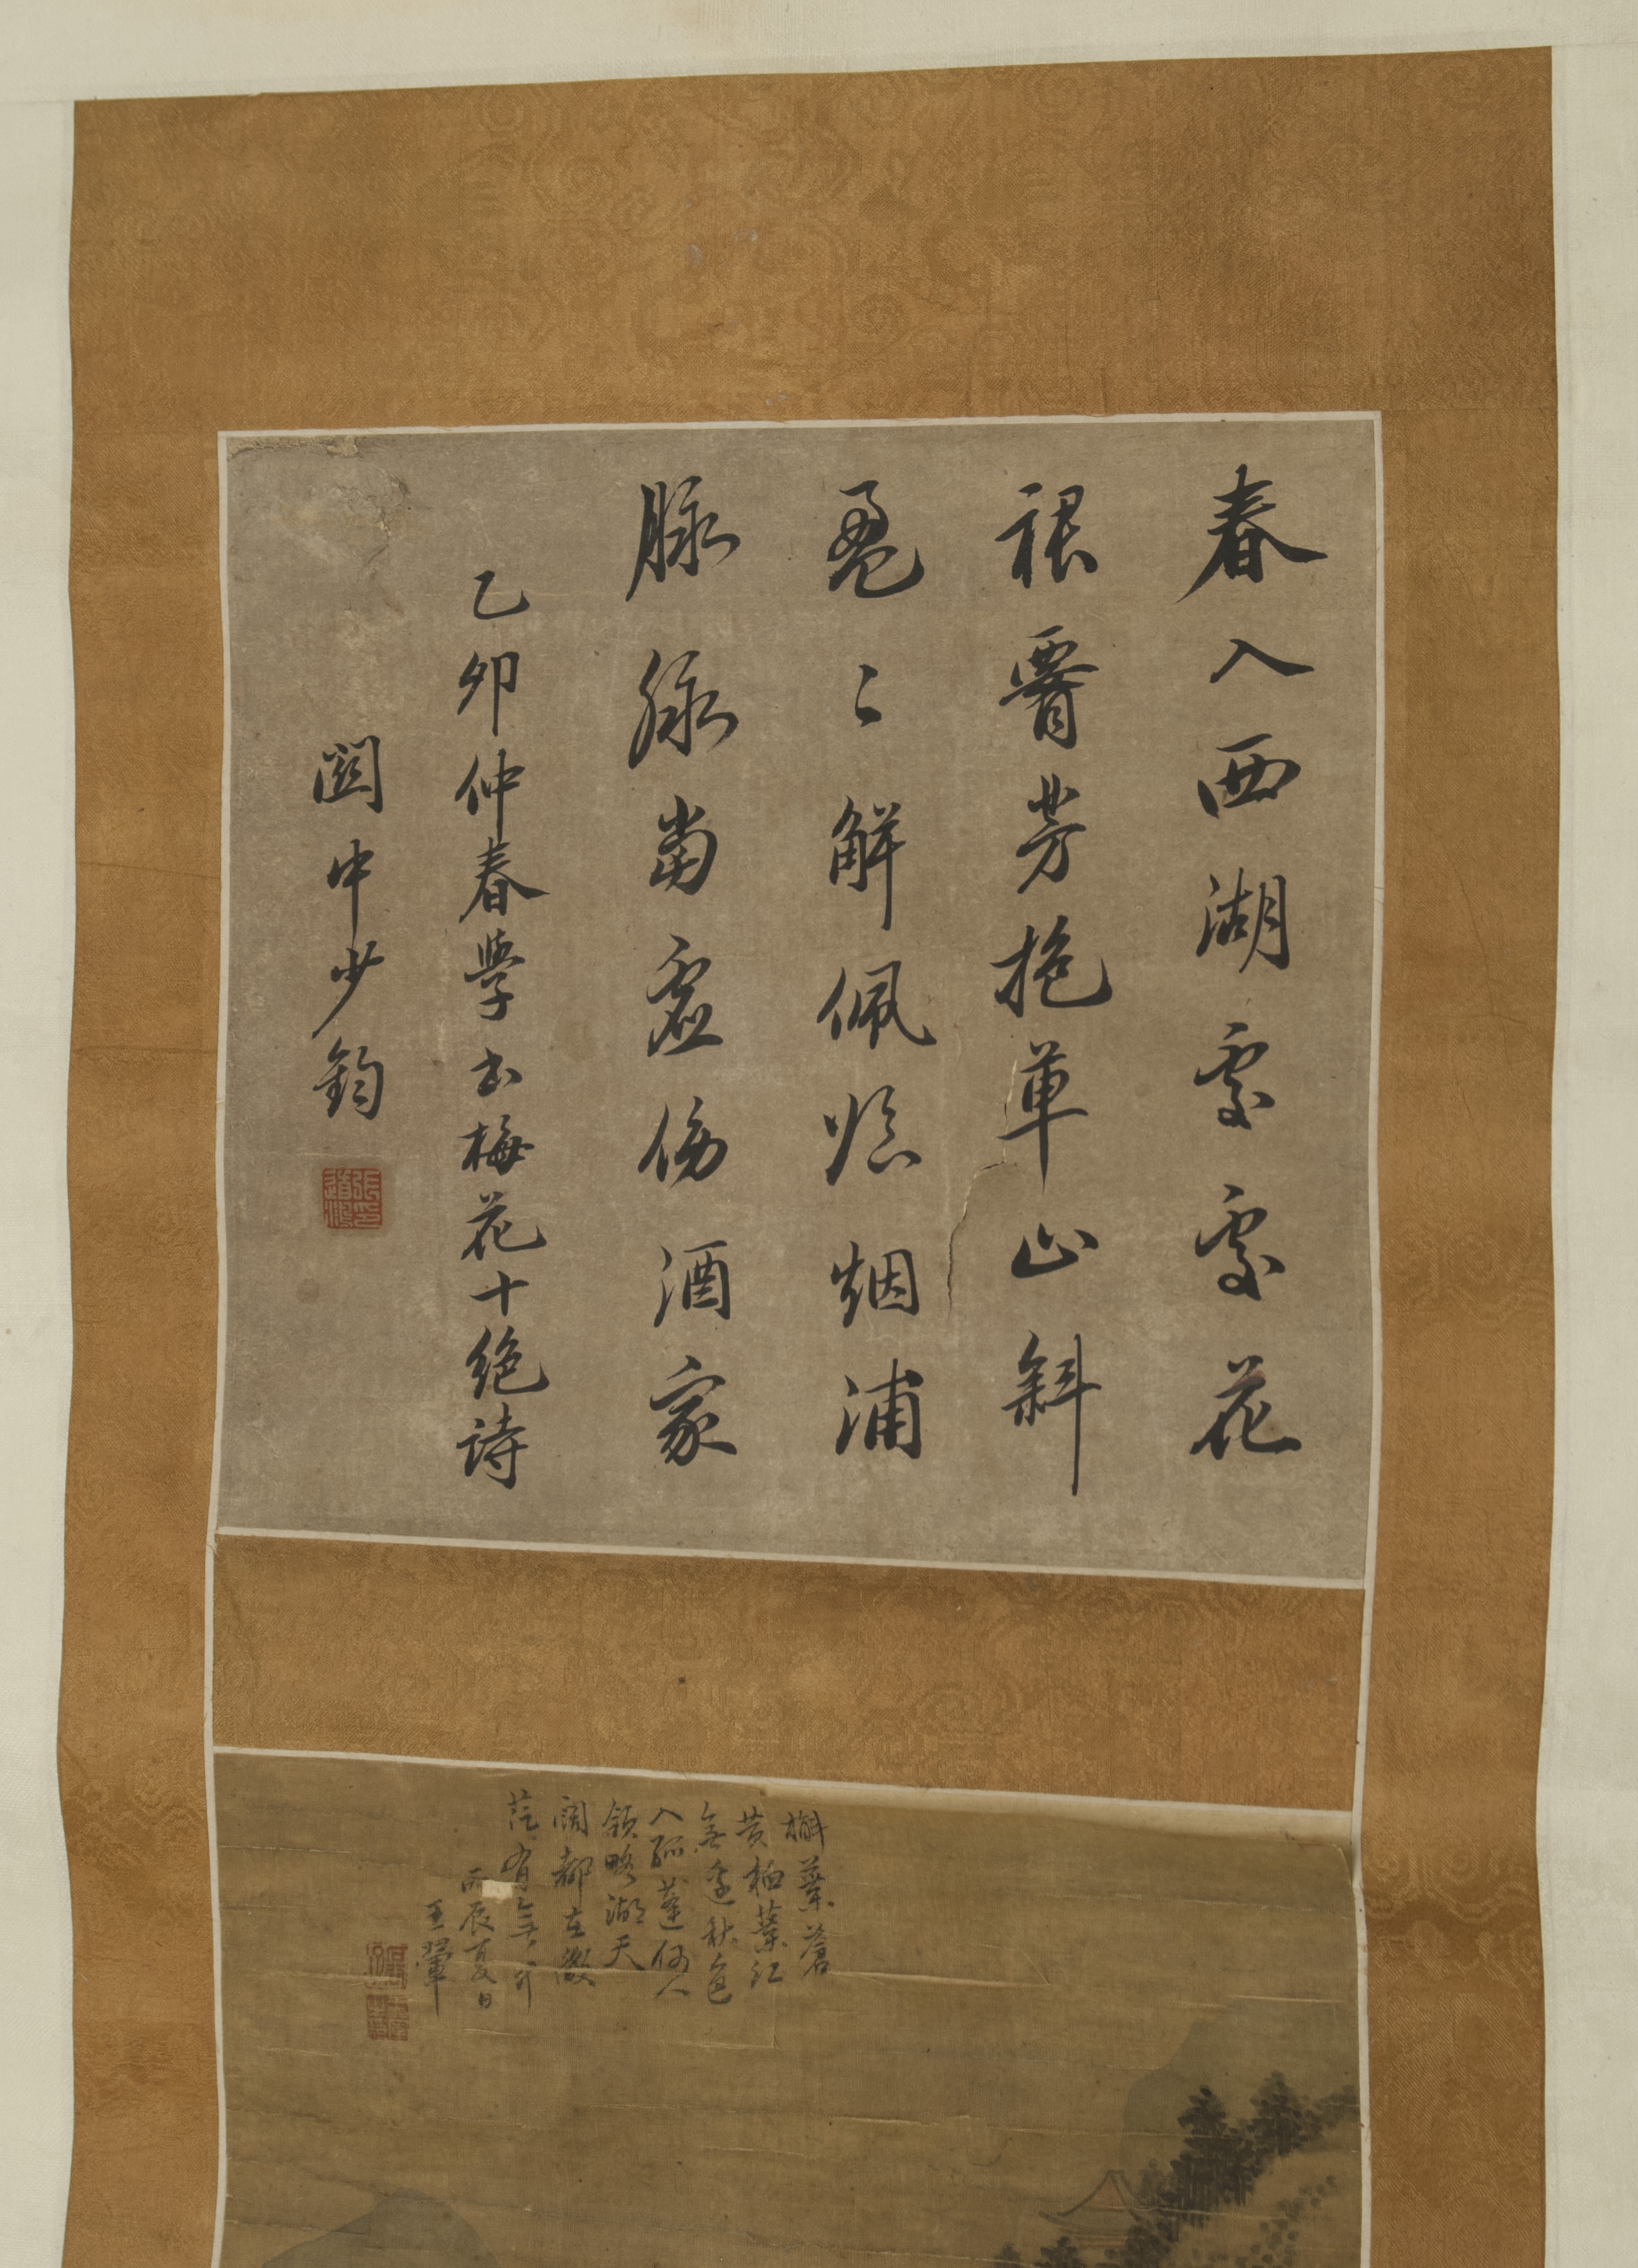 春入西湖處處花
裙腰芳抱草山斜
盈〻解佩臨烟浦
脉脉當虛傍酒家
乙卯仲春學書梅花十絕詩
關中少鈞
槲葉蒼
黃柏葉紅
無邊秋色
入孤蓬何人
領略湖天
闊都在微
茫有無中
丙辰夏日
王翬